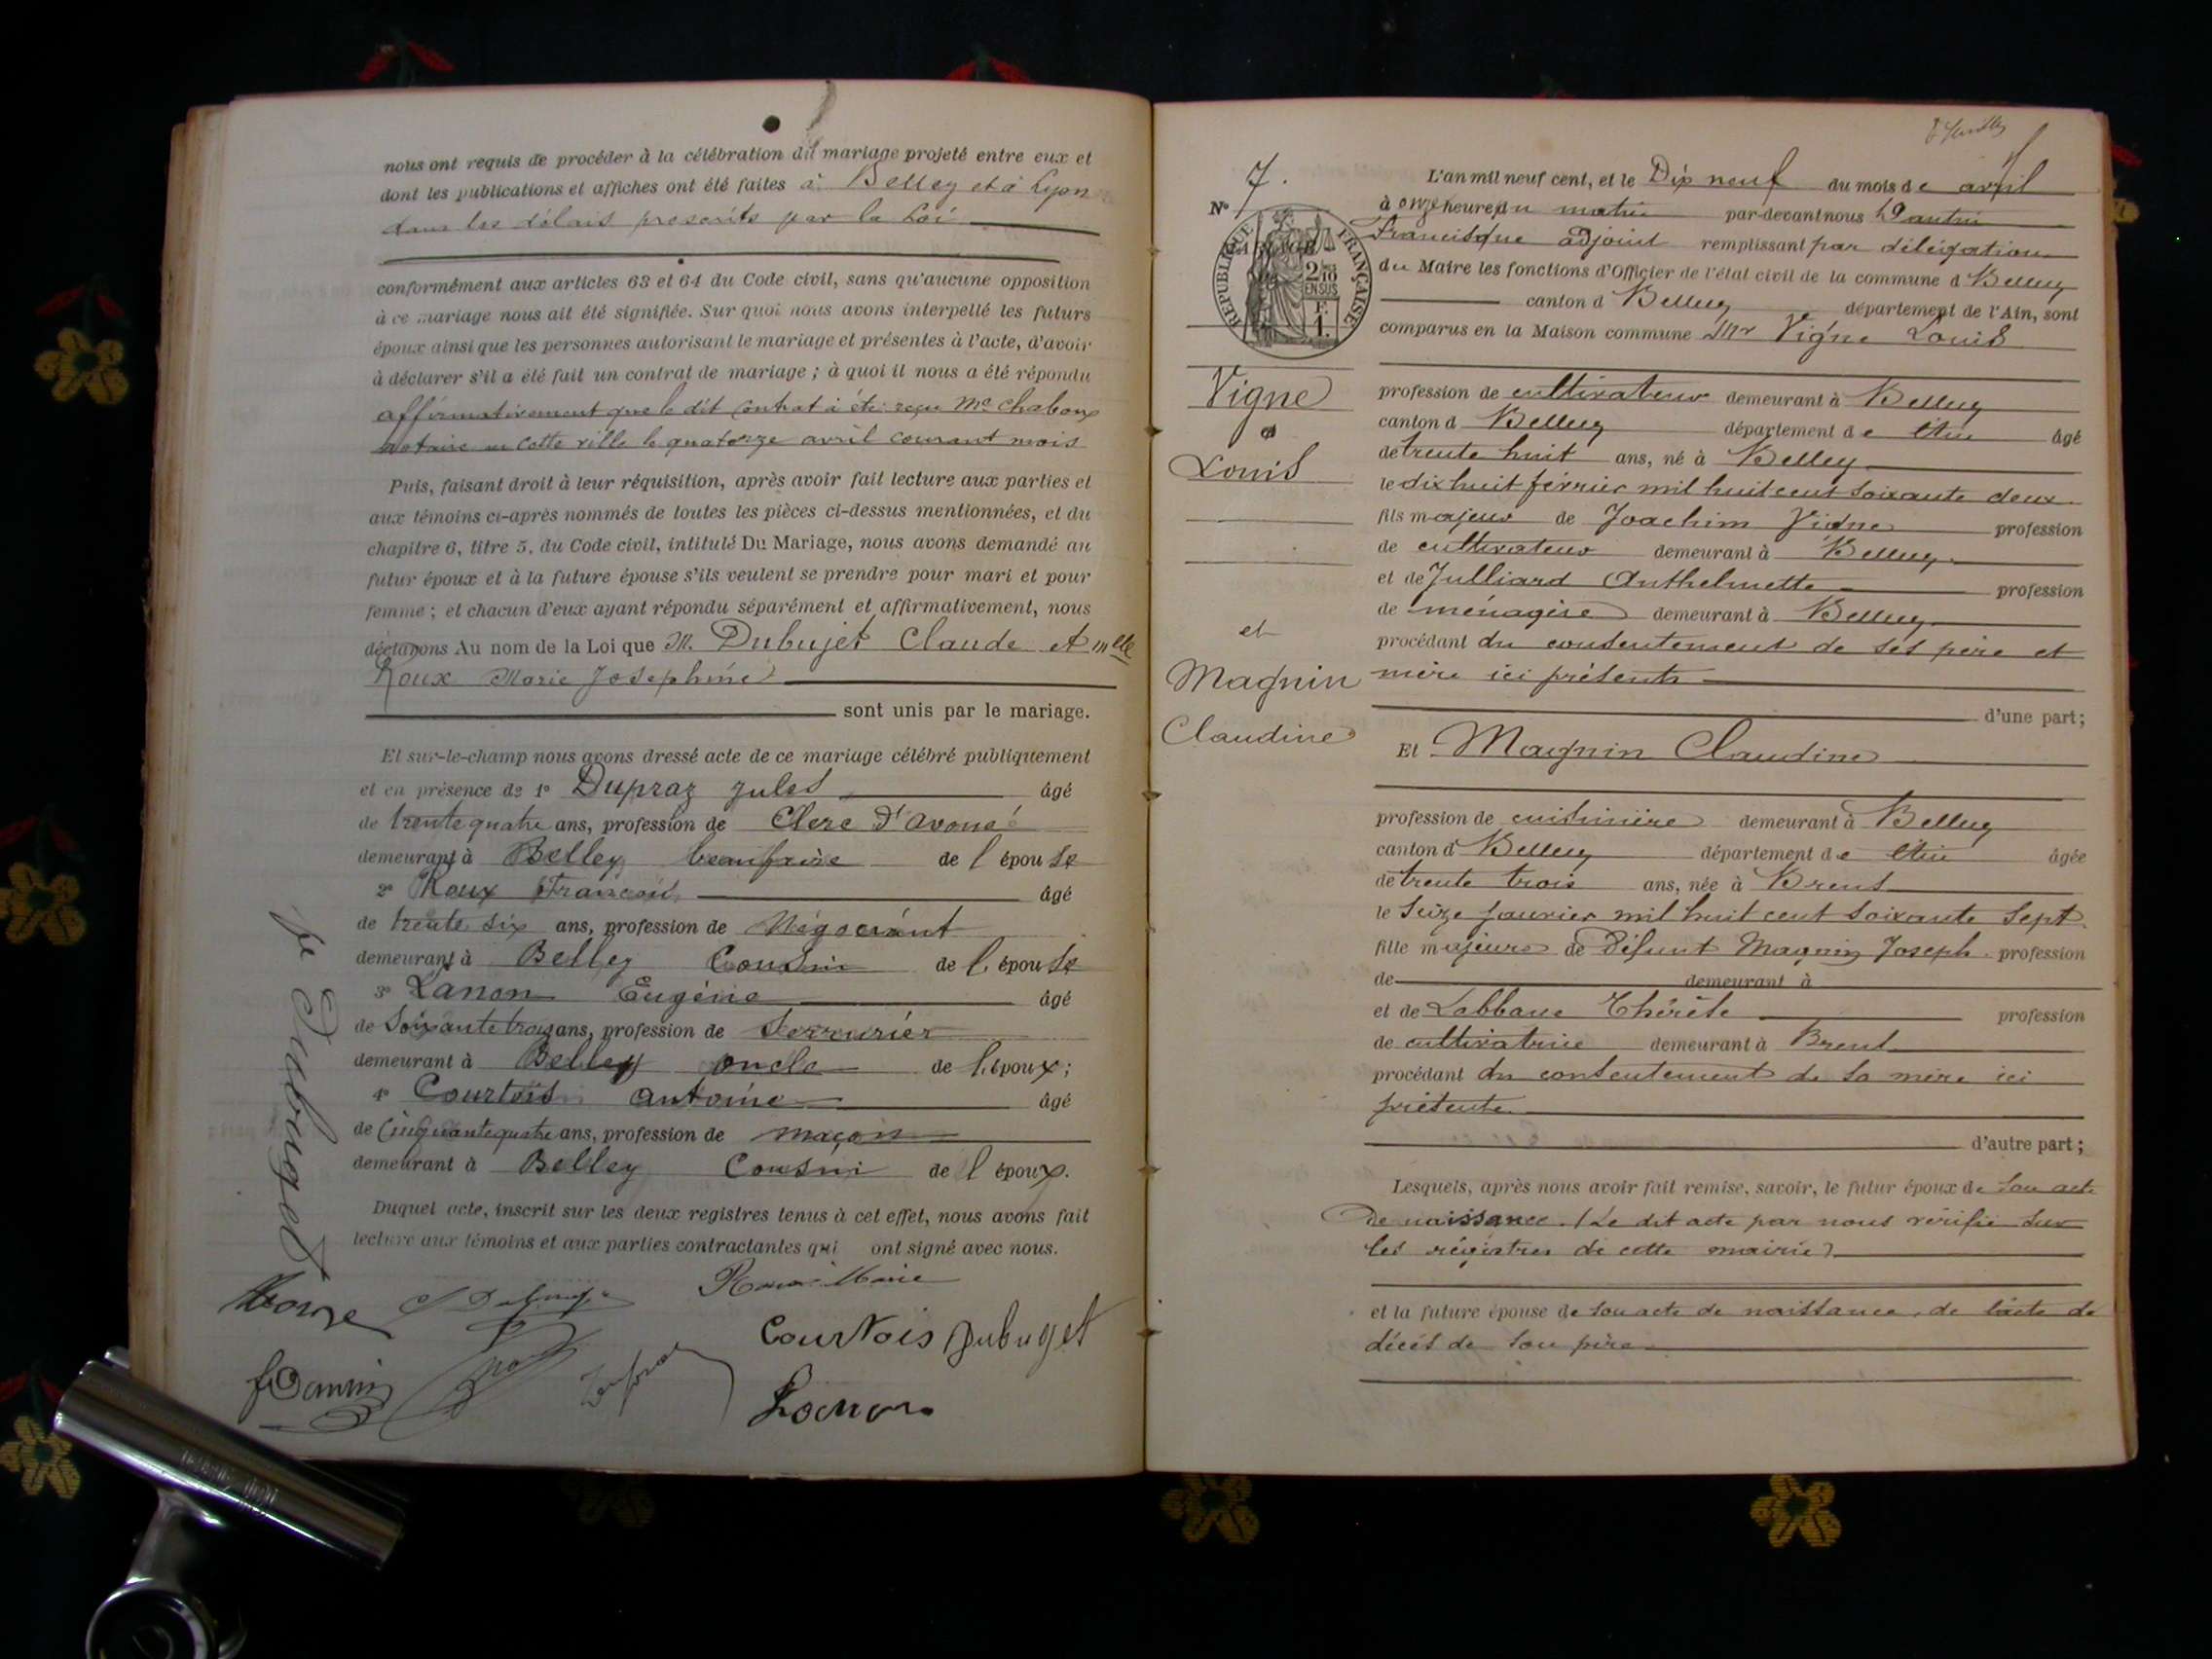 nous ont requis de procéder à la célébration du mariage projeté entre eux et
dont les publications et affiches ont été faites à Belley et à Lyon
dans les délais prescrits par la Loi
conformément aux articles 63 et 64 du Code civil, sans qu'aucune opposition
à ce mariage nous ait été signifiée. Sur quoi nous avons interpellé les futurs
époux ainsi que les personnes autorisant le mariage et présentes à l'acte, d'avoir
à déclarer s'il a été fait un contrat de mariage ; à quoi il nous a été répondu
affirmativement que le dit contrat à été reçu Me Chaboux
notaire en cette ville le quatorze avril courant mois
Puis, faisant droit à leur réquisition, après avoir fait lecture aux parties et
aux témoins ci-après nommés de toutes les pièces ci-dessus mentionnées, et du
chapitre 6, titre 5, du Code civil, intitulé Du Mariage, nous avons demandé au
futur époux et à la future épouse s'ils veulent se prendre pour mari et pour
femme ; et chacun d'eux ayant répondu séparément et affirmativement, nous
déclarons Au nom de la Loi que M. Dubujet Claude et Mlle
Roux Marie Joséphine
sont unis par le mariage.
Et sur-le-champ nous avons dressé acte de ce mariage célébré publiquement
et en présence de 1° Dupraz Jules âgé
de trente quatre ans, profession de Clerc d'avoué
demeurant à Belley beaufrère de l'épouse
2° Roux François âgé
de trente six ans, profession de Négociant
demeurant à Belley Cousin de l'épouse
3° Lanon Eugène âgé
de Soixante trois ans, profession de Serrurier
demeurant à Belley oncle de l'époux ;
4° Courtois antoine âgé
de Cinquante quatre ans, profession de maçon
demeurant à Belley Cousin de l'époux.
Duquel acte, inscrit sur les deux registres tenus à cet effet, nous avons fait
lecture aux témoins et aux parties contractantes qui ont signé avec nous.
Dubouget
Roux Marie
Courtois Dubuget
Lanon
7.
N°
RÉPUBLIQUE FRANÇAISE
2/10
EN SUS
F.
1.
Vigne
Louis
et
Magnin
Claudine
L'an mil neuf cent, et le Dix neuf du mois de avril
à onze heures du matin par-devant nous Dantin
Francisque adjoint remplissant par délégation
du Maire les fonctions d'Officier de l'état civil de la commune d Belley
canton d Belley département de l'Ain, sont
comparus en la Maison commune Mr Vigne Louis
profession de cultivateur demeurant à Belley
canton d Belley département de l'Ain âgé
de trente huit ans, né à Belley
le dix huit février mil huit cent soixante deux
fils majeur de Joachim Vigne profession
de cultivateur demeurant à Belley
et de Julliard Anthelmette profession
de ménagère demeurant à Belley
procédant du consentement de ses père et
mère ici présents
d'une part ;
Et Magnin Claudine
profession de cuisinière demeurant à Belley
canton d Belley département de l'Ain âgée
de trente trois ans, née à Brens
le seize janvier mil huit cent soixante sept
fille majeure de Défunt Magnin Joseph profession
de demeurant à
et de Labbaue Thérèse profession
de cultivatrice demeurant à Brens
procédant du consentement de sa mère ici
présente
d'autre part ;
Lesquels, après nous avoir fait remise, savoir, le futur époux de son acte
de naissance. (Le dit acte par nous vérifié sur
les régistres de cette mairie)
et la future épouse de son acte de naissance, de l'acte de
décès de son père